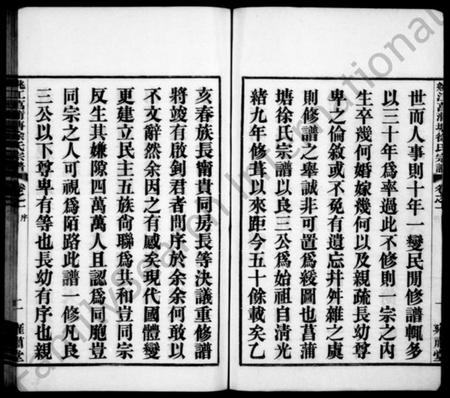 世而人事則十年一變民閒修譜輒多
以三十年爲率過此不修則一宗之內
生卒幾何婚嫁幾何以及親疏長幼尊
卑之倫敘或不免有遺忘幷舛雜之虞
則修譜之舉誠非可置爲緩圖也菖蒲
塘徐氏宗譜以良三公爲始祖自清光
緒九年修葺以來距今五十餘載矣乙
亥春族長甯貴同房長等決議重修譜
將竣有啟到君者問序於余余何敢以
不文辭然余因之有感矣現代國體變
更建立民主五族尙聯爲共和豈同宗
反生其嫌隙四萬萬人且認爲同胞豈
同宗之人可視爲陌路此譜一修允良
三公以下尊卑有等也長幼有序也親
姚江菖蒲塘徐氏宗譜 卷之一 序
FamilySearch International